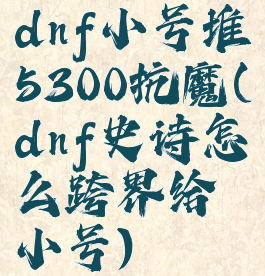 dnf小号堆
5300抗魔(
dnf史诗怎
么跨界给
小号)